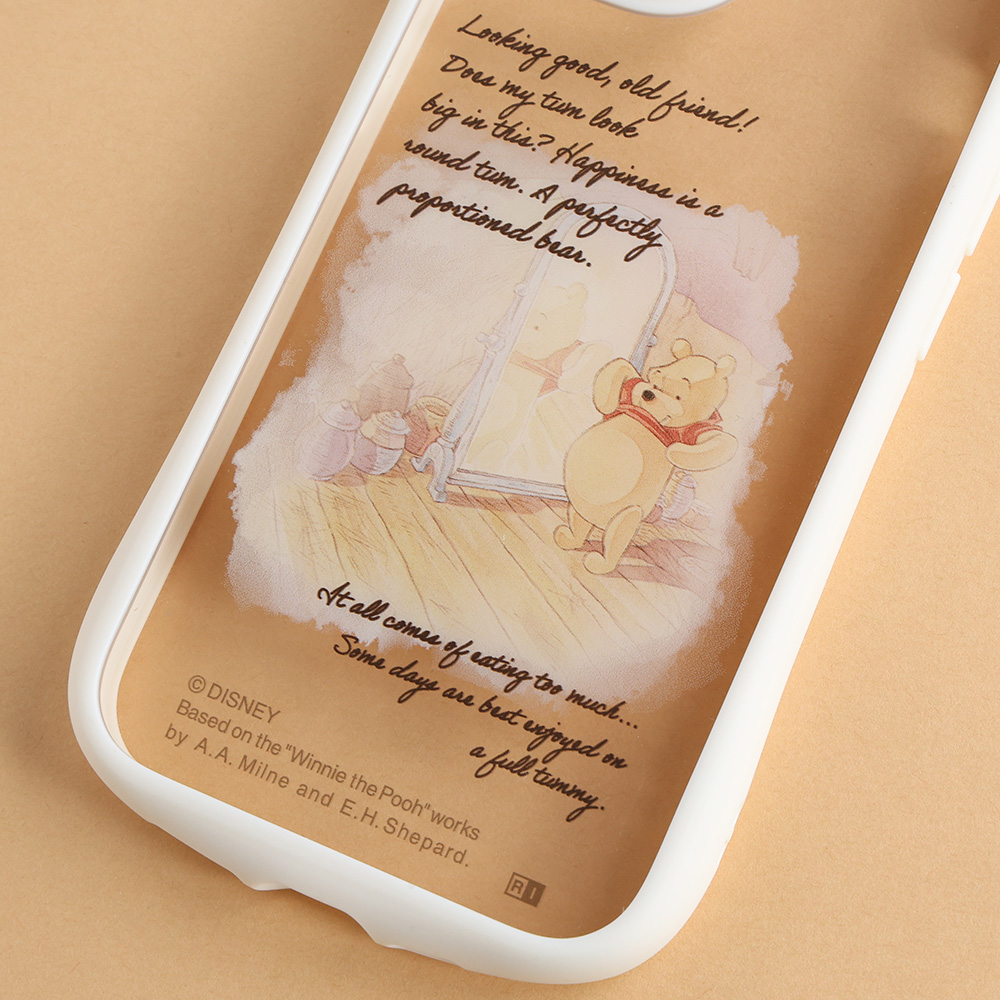 Looking good, old friend!
Does my tum look
big in this? Happiness is a
round tum. A perfectly
proportioned bear.
It all comes of eating too much...
Some days are best enjoyed on
a full tummy.
© DISNEY
Based on the "Winnie the Pooh" works
by A.A. Milne and E.H. Shepard.
RI